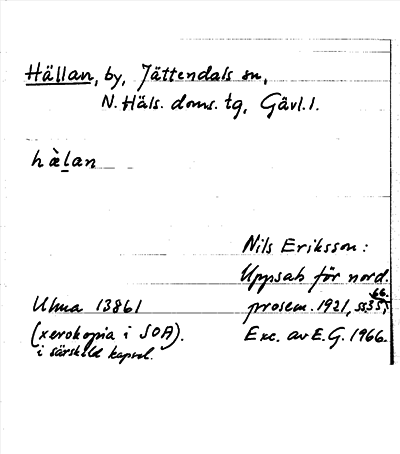 Hällan, by, Jättendals sn,
N. Häls. doms. tg, Gävl. l.
hàlan
Nils Eriksson:
Uppsats för nord.
prosem. 1921, ss 35, 66.
Exc. av E.G. 1966.
Ulma 13861
(xerokopia i SOA).
i särskild kapsel.